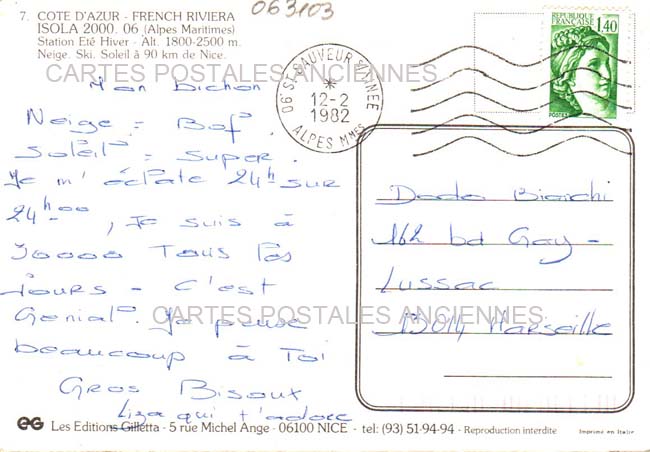 063103
7. COTE D'AZUR - FRENCH RIVIERA
ISOLA 2000. 06 (Alpes Maritimes)
Station Eté Hiver - Alt. 1800-2500 m.
Neige. Ski. Soleil à 90 km de Nice.
CARTES POSTALES ANCIENNES
Mon Bichon
Neige = Bof
Soleil = Super.
Je m'éclate 24h sur
24h00, Je suis à
30000 Tous les
Jours - C'est
Genial. Je pense
beaucoup à Toi
Gros Bisoux
Liza qui t'adore
REPUBLIQUE FRANÇAISE
1,40
POSTES
06 ST SAUVEUR S TINEE
12-2
1982
ALPES MMES
Dodo Bianchi
162 bd Gay-
Lussac
13014 Marseille
CARTES POSTALES ANCIENNES
EG Les Editions Gilletta - 5 rue Michel Ange - 06100 NICE - tel: (93) 51-94-94 - Reproduction interdite
Imprimé en Italie